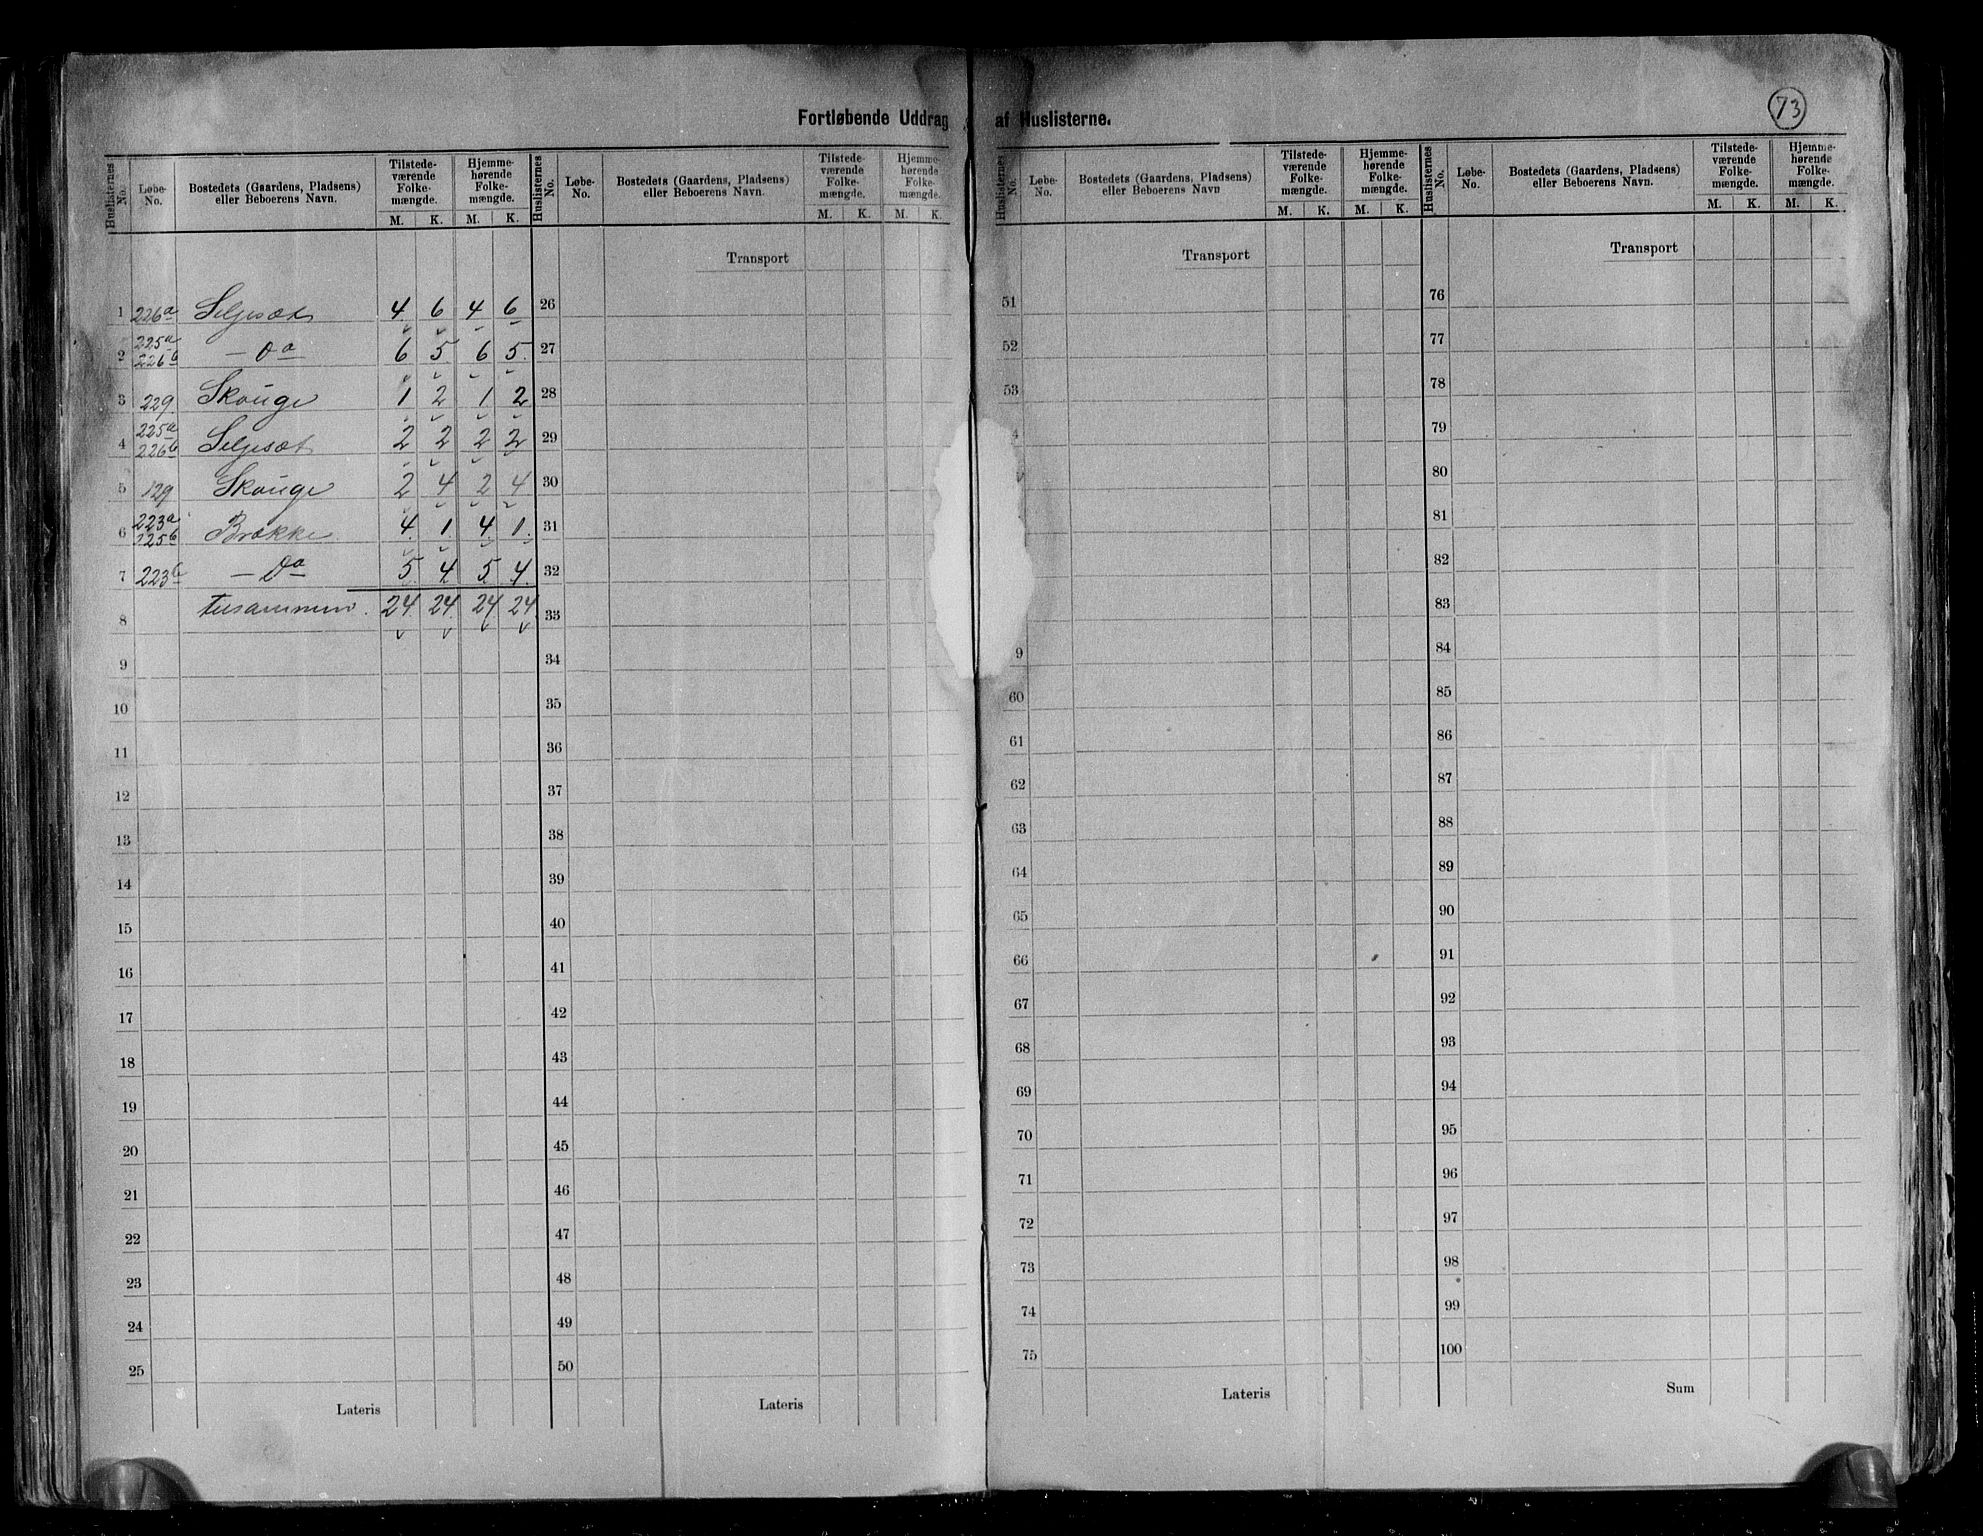 73
Fortløbende Uddrag af Huslisterne.
Huslisternes No. | Løbe-No. | Bostedets (Gaardens, Pladsens) eller Beboerens Navn. | Tilstedeværende Folkemængde. M. K. | Hjemmehørende Folkemængde. M. K.
1 | 226a | Seljesæt | 4 | 6 | 4 | 6
2 | 225a 226b | — Do | 6 | 5 | 6 | 5
3 | 229 | Skouge | 1 | 2 | 1 | 2
4 | 225a 226b | Seljesæt | 2 | 2 | 2 | 2
5 | 129 | Skouge | 2 | 4 | 2 | 4
6 | 223a 225b | Brække | 4 | 1 | 4 | 1
7 | 223b | — Do | 5 | 4 | 5 | 4
8 | tilsammen | 24 | 24 | 24 | 24
9
10
11
12
13
14
15
16
17
18
19
20
21
22
23
24
25
Lateris
Huslisternes No. | Løbe-No. | Bostedets (Gaardens, Pladsens) eller Beboerens Navn. | Tilstedeværende Folkemængde. M. K. | Hjemmehørende Folkemængde. M. K.
Transport
26
27
28
29
30
31
32
33
34
35
36
37
38
39
40
41
42
43
44
45
46
47
48
49
50
Lateris
Huslisternes No. | Løbe-No. | Bostedets (Gaardens, Pladsens) eller Beboerens Navn | Tilstedeværende Folkemængde. M. K. | Hjemmehørende Folkemængde. M. K.
Transport
51
52
53
4
9
60
61
62
63
64
65
66
67
68
69
70
71
72
73
74
75
Lateris
Huslisternes No. | Løbe-No. | Bostedets (Gaardens, Pladsens) eller Beboerens Navn. | Tilstedeværende Folkemængde. M. K. | Hjemmehørende Folkemængde. M. K.
Transport
76
77
78
79
80
81
82
83
84
85
86
87
88
89
90
91
92
93
94
95
96
97
98
99
100
Sum